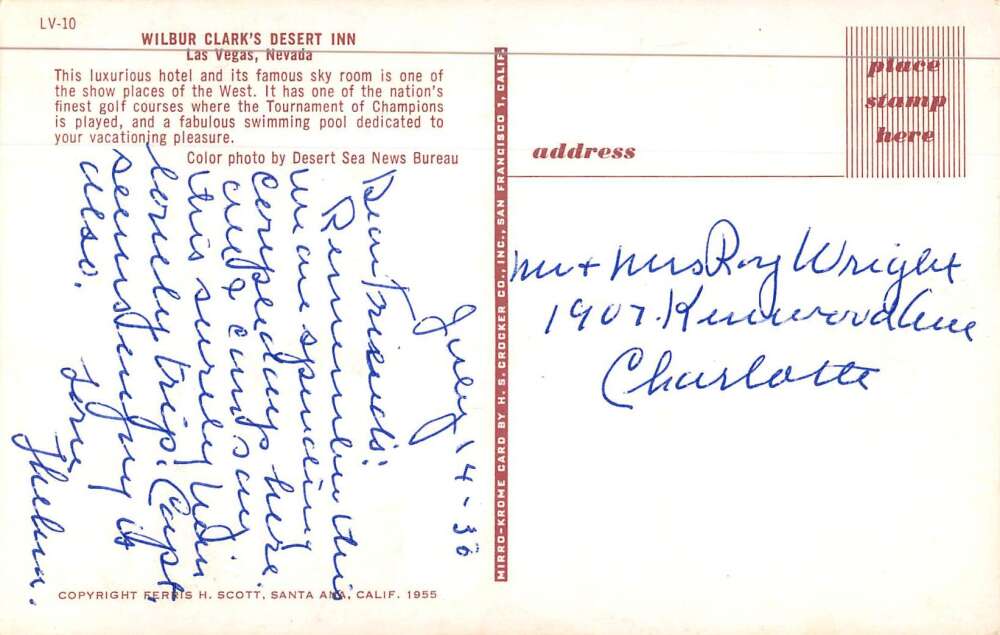 LV-10
WILBUR CLARK'S DESERT INN
Las Vegas, Nevada
This luxurious hotel and its famous sky room is one of
the show places of the West. It has one of the nation's
finest golf courses where the Tournament of Champions
is played, and a fabulous swimming pool dedicated to
your vacationing pleasure.
Color photo by Desert Sea News Bureau
July 14-
Dear Friends:
Remember this
we are spending
couple days here.
and I can say
this surely been
lovely trip. Capt.
seems enjoy it
also.
Love,
Thelma.
COPYRIGHT FERRIS H. SCOTT, SANTA ANA, CALIF. 1955
MIRRO-KROME CARD BY H. S. CROCKER CO., INC., SAN FRANCISCO 1, CALIF.
place
stamp
here
address
Mr + Mrs Roy Wright
1907 Kenwood Ave
Charlotte